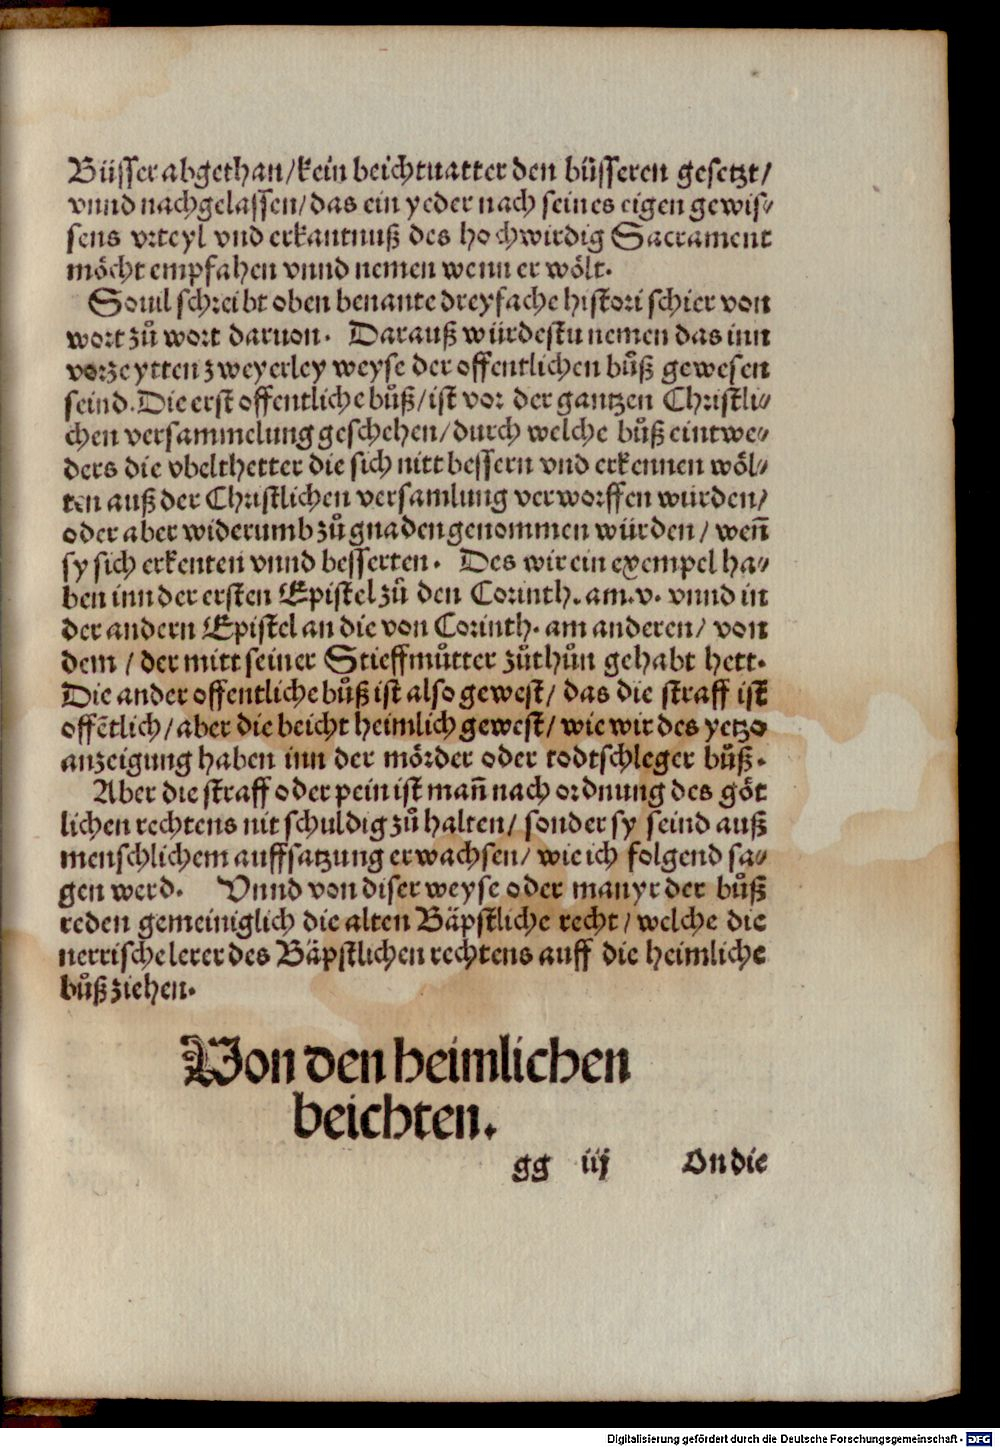 Büsser abgethan/kein beichtuatter den büsseren gesetzt/
vnnd nachgelassen/das ein yeder nach seines eigen gewis⸗
sens vrteyl vnd erkantnuß des hochwirdig Sacrament
möcht empfahen vnnd nemen wenn er wölt.
Souil schreibt oben benante dreyfache histori schier von
wort zů wort daruon. Darauß würdestu nemen das inn
vorzeytten zweyerley weyse der offentlichen bůß gewesen
seind. Die erst offentliche bůß/ist vor der gantzen Christli⸗
chen versammelung geschehen/durch welche bůß eintwe⸗
ders die vbelthetter die sich nitt bessern vnd erkennen wöl⸗
ten auß der Christlichen versamlung verworffen wurden/
oder aber widerumb zů gnaden genommen würden/ weñ
sy sich erkenten vnnd besserten. Des wir ein exempel ha⸗
ben inn der ersten Epistel zů den Corinth. am. v. vnnd in
der andern Epistel an die von Corinth. am anderen/ von
dem / der mitt seiner Stieffmůtter zůthůn gehabt hett.
Die ander offentliche bůß ist also gewest/ das die straff ist
offẽtlich/aber die beicht heimlich gewest/ wie wir des yetzo
anzeigung haben inn der mörder oder todtschleger bůß.
Aber die straff oder pein ist mañ nach ordnung des göt
lichen rechtens nit schuldig zů halten/ sonder sy seind auß
menschlichem auffsatzung erwachsen/ wie ich folgend sa⸗
gen werd. Vnnd von diser weyse oder manyr der bůß
reden gemeiniglich die alten Bäpstliche recht/ welche die
nerrische lerer des Bäpstlichen rechtens auff die heimliche
bůß ziehen.
Von den heimlichen
beichten.
gg iij On die
Digitalisierung gefördert durch die Deutsche Forschungsgemeinschaft - DFG